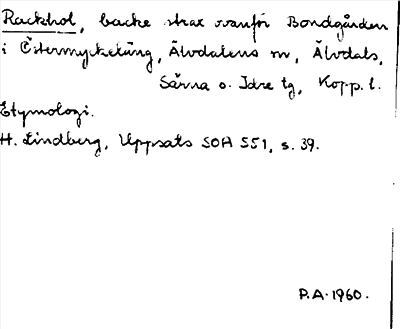 Rackhol, backe strax ovanför Bondgården
i Östermyckeläng, Älvdalens sn, Älvdals,
Särna o. Idre tg, Kopp. l.
Etymologi.
H. Lindberg, Uppsats SOH 551, s. 39.
P.A. 1960.